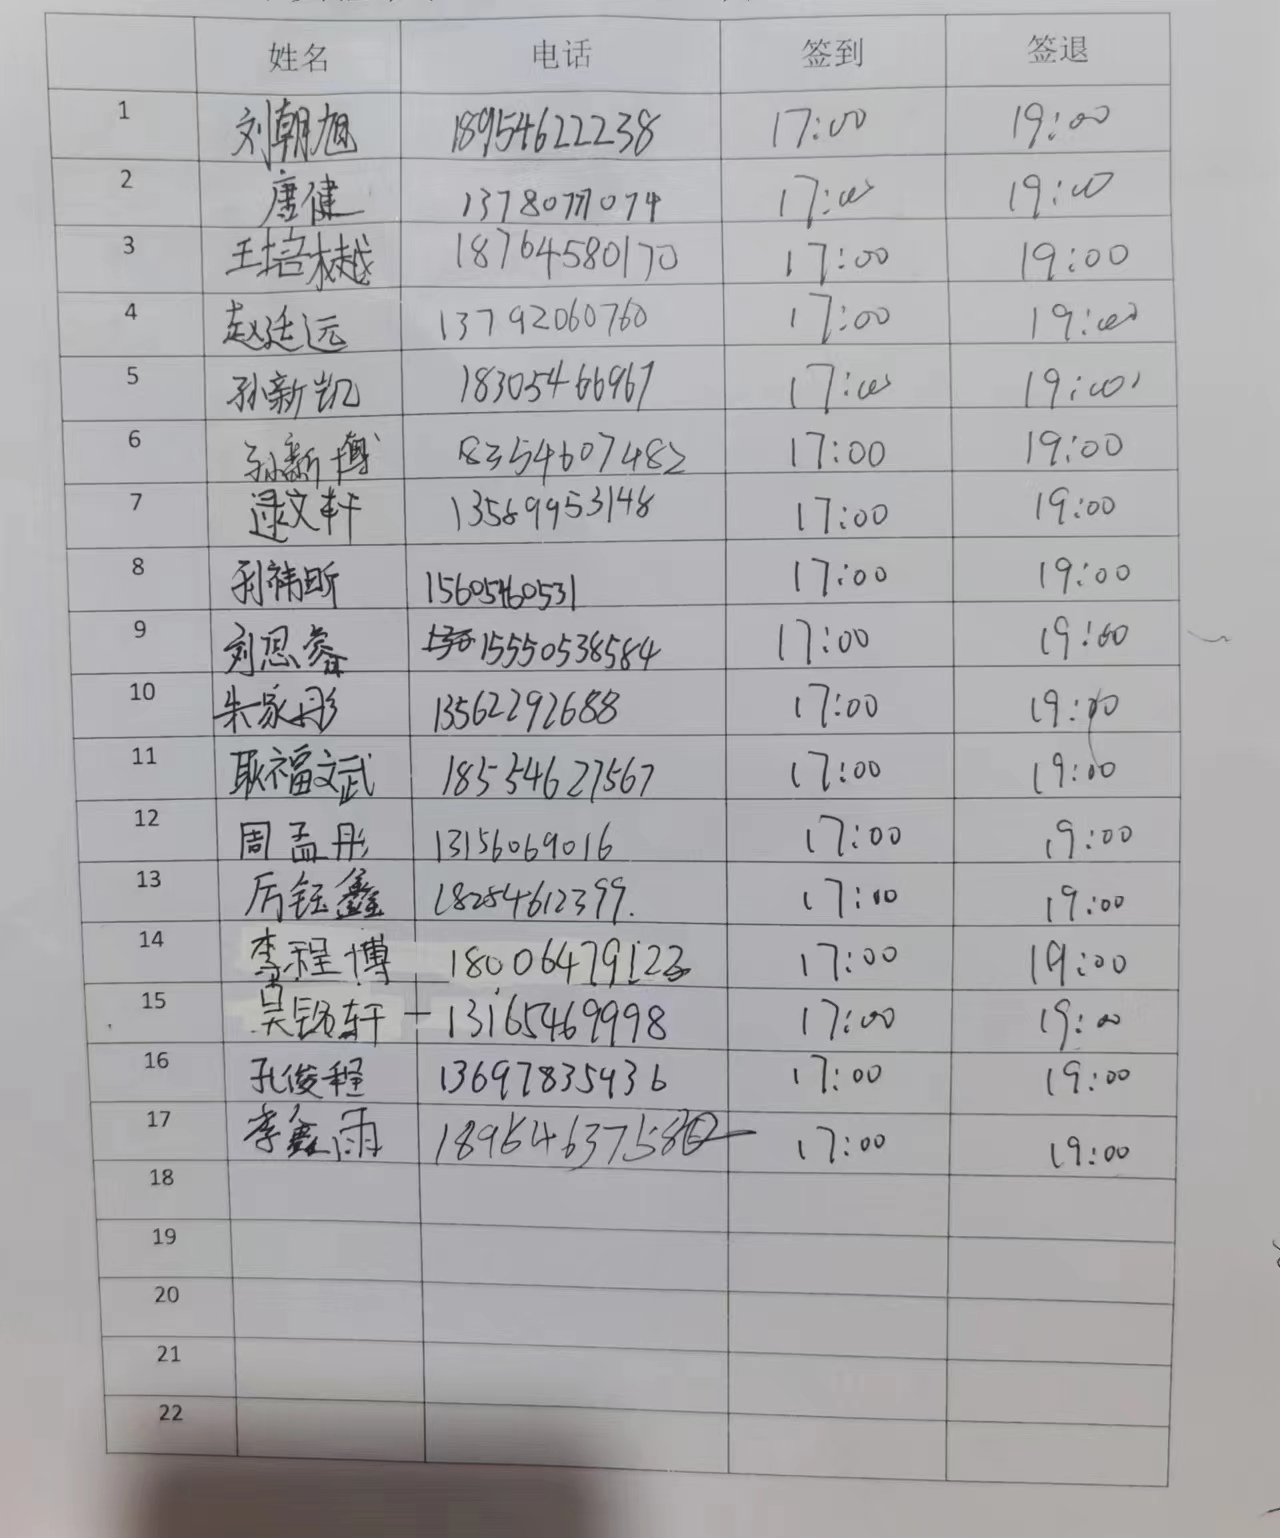 姓名 电话 签到 签退
1 刘朝旭 18954622238 17:00 19:00
2 唐健 13780777074 17:00 19:00
3 王培樾 18764580170 17:00 19:00
4 赵廷远 13792060760 17:00 19:00
5 孙新凯 18305466967 17:00 19:00
6 孙新博 8354607482 17:00 19:00
7 逯文轩 13569953148 17:00 19:00
8 15605460531 17:00 19:00
9 刘思睿 15550538584 17:00 19:00
10 朱家彤 13562292688 17:00 19:00
11 耿福文武 18554627567 17:00 19:00
12 周孟彤 13156069016 17:00 19:00
13 厉钰鑫 18254612399. 17:00 19:00
14 李程博 17:00 19:00
15 轩 13165469998 17:00 19:00
16 孔俊程 13697835936 17:00 19:00
17 李鑫雨 17:00 19:00
18
19
20
21
22